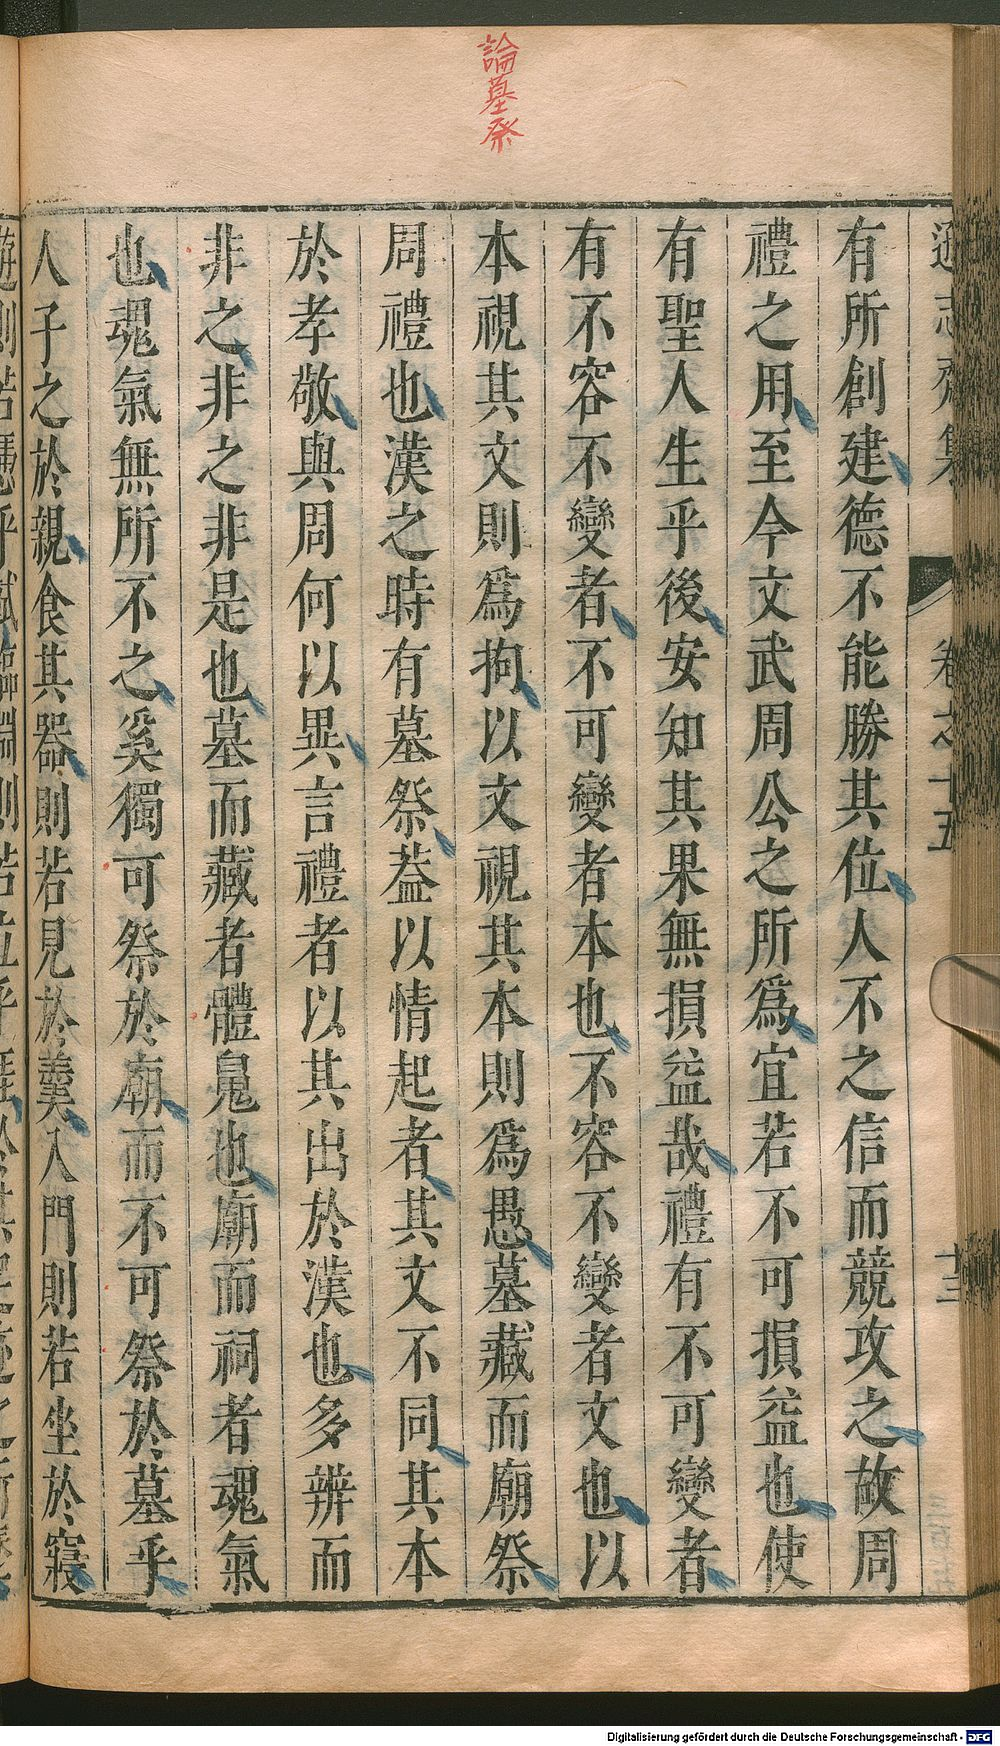 論墓祭
遜志齋集 卷之十五 十三
有所創建德不能勝其位人不之信而競攻之故周
禮之用至今文武周公之所爲宜若不可損益也使
有聖人生乎後安知其果無損益哉禮有不可變者
有不容不變者不可變者本也不容不變者文也以
本視其文則爲拘以文視其本則爲愚墓藏而廟祭
周禮也漢之時有墓祭葢以情起者其文不同其本
於孝敬與周何以異言禮者以其出於漢也多辨而
非之非之非是也墓而藏者體魄也廟而祠者魂氣
也魂氣無所不之奚獨可祭於廟而不可祭於墓乎
人子之於親食其器則若見於羹入門則若坐於寢
Digitalisierung gefördert durch die Deutsche Forschungsgemeinschaft - DFG